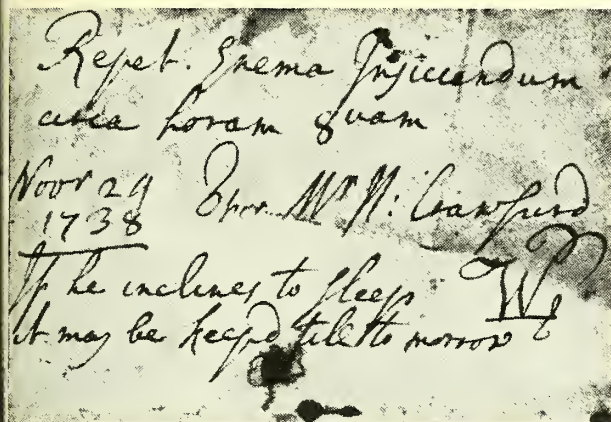 Repet. Enema Injiciendum
circa horam 8vam
Novr 29
1738
Mr N: Crawfurd
If he inclines to sleep
it may be keepd till to morrow